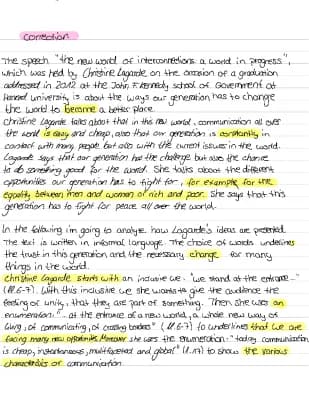 correction
The speech "the new world of interconnections a world in progress",
which was held by Christine Lagarde on the occasion of a graduation
addressed in 2012 at the John F. Kennedy School of Government at
Harvard University, is about the ways our generation has to change
the world to become a better place.
Christine Lagarde talks about that in this new world, communication all over
the world is easy and cheap, also that our generation is constantly in
contact with many people but also with the current issues in the world.
Lagarde says that our generation has the challenge but also the chance
to do something good for the world. She talks about the different
opportunities our generation has to fight for, for example for the
equality between men and women or rich and poor. She says that this
generation has to fight for peace all over the world.
In the following I'm going to analyse how Lagarde's ideas are presented.
The text is written in informal language. The choice of words underlines
the trust in this generation and the necessary change for many
things in the world.
Christine Lagarde starts with an inclusive we: "we stand at the entrance..."
(ll. 6-7). With this inclusive we she wants to give the audience the
feeling of unity, that they are part of something. Then she uses an
enumeration: "... at the entrance of a new world, a whole new way of
living, of communicating, of crossing borders" (ll. 6-7) to underlines that we are
facing many new opportunities. Moreover she uses the enumeration: "today communication
is cheap, instantaneous, multifaceted and global" (l. 17) to show the various
characteristics of communication.